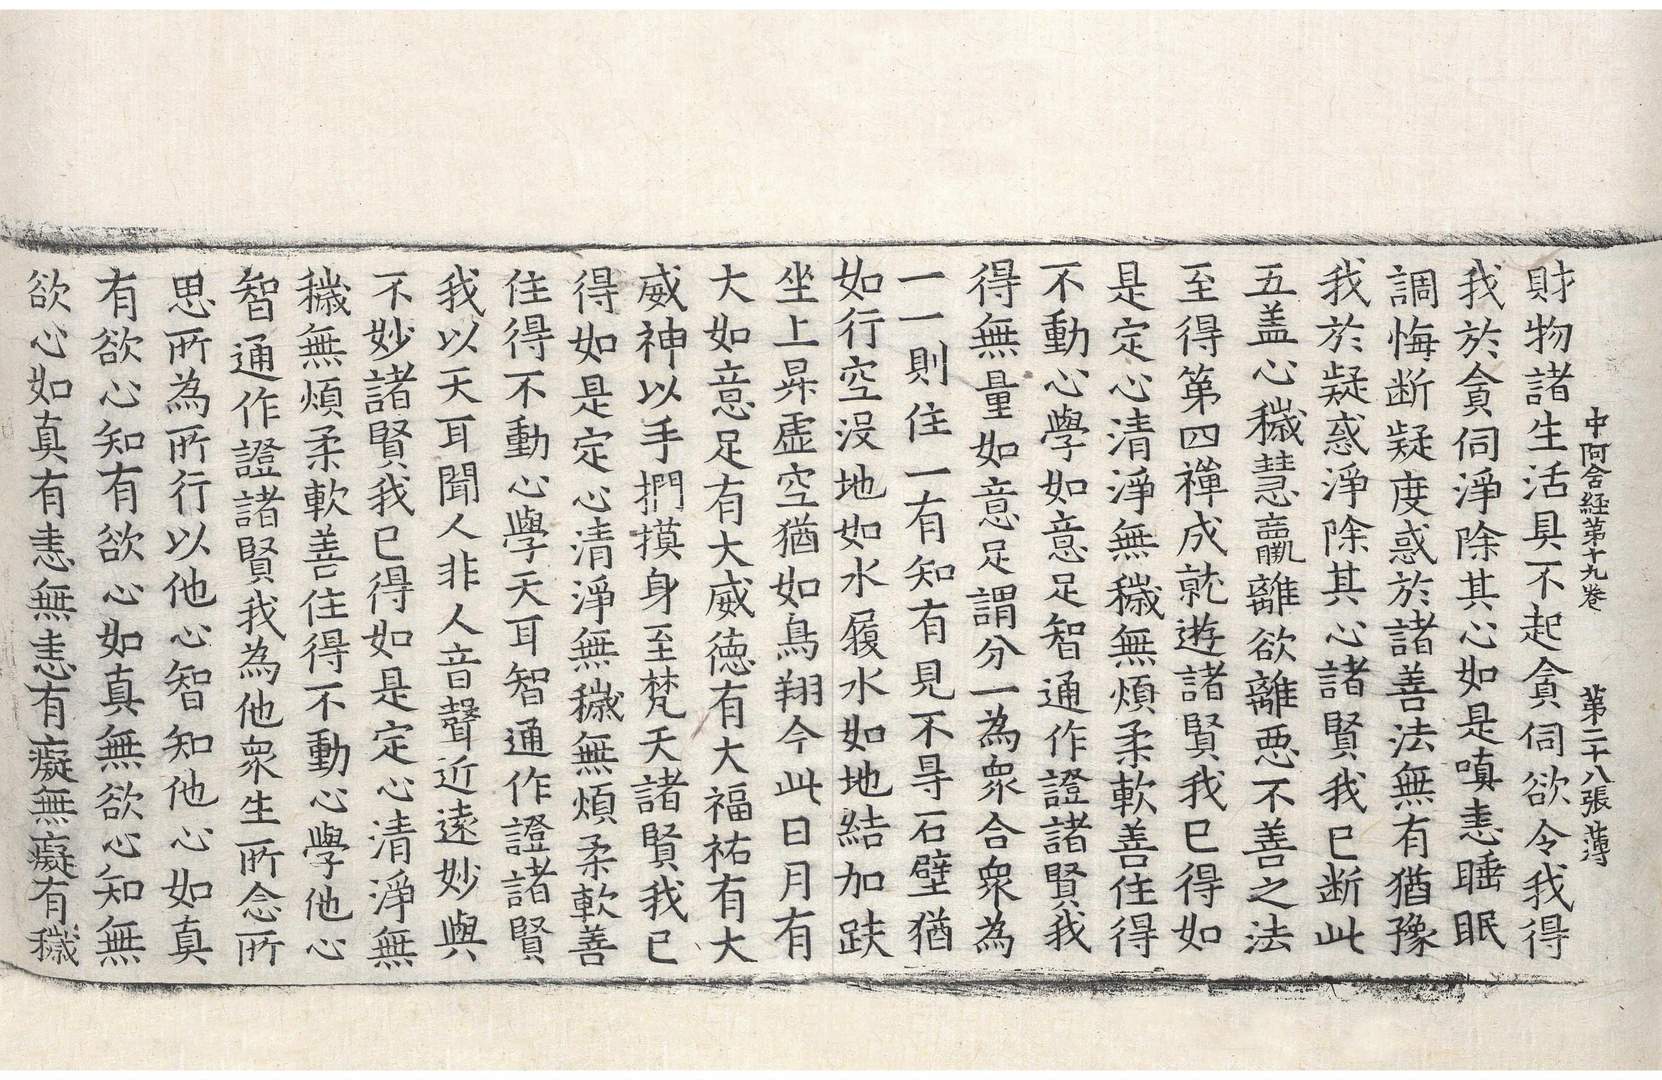 中阿含經第十九卷 第二十八張 薄
財物諸生活具不起貪伺欲令我得
我於貪伺淨除其心如是嗔恚睡眠
調悔断疑度惑於諸善法無有猶豫
我於疑惑淨除其心諸賢我已断此
五盖心穢慧羸離欲離惡不善之法
至得第四禪成就遊諸賢我已得如
是定心清淨無穢無煩柔軟善住得
不動心學如意足智通作證諸賢我
得無量如意足謂分一為衆合衆為
一一則住一有知有見不㝵石壁猶
如行空沒地如水履水如地結加趺
坐上昇虛空猶如鳥翔今此日月有
大如意足有大威德有大福祐有大
威神以手捫摸身至梵天諸賢我已
得如是定心清淨無穢無煩柔軟善
住得不動心學天耳智通作證諸賢
我以天耳聞人非人音聲近遠妙與
不妙諸賢我已得如是定心清淨無
穢無煩柔軟善住得不動心學他心
智通作證諸賢我為他衆生所念所
思所為所行以他心智知他心如真
有欲心知有欲心如真無欲心知無
欲心如真有恚無恚有癡無癡有穢